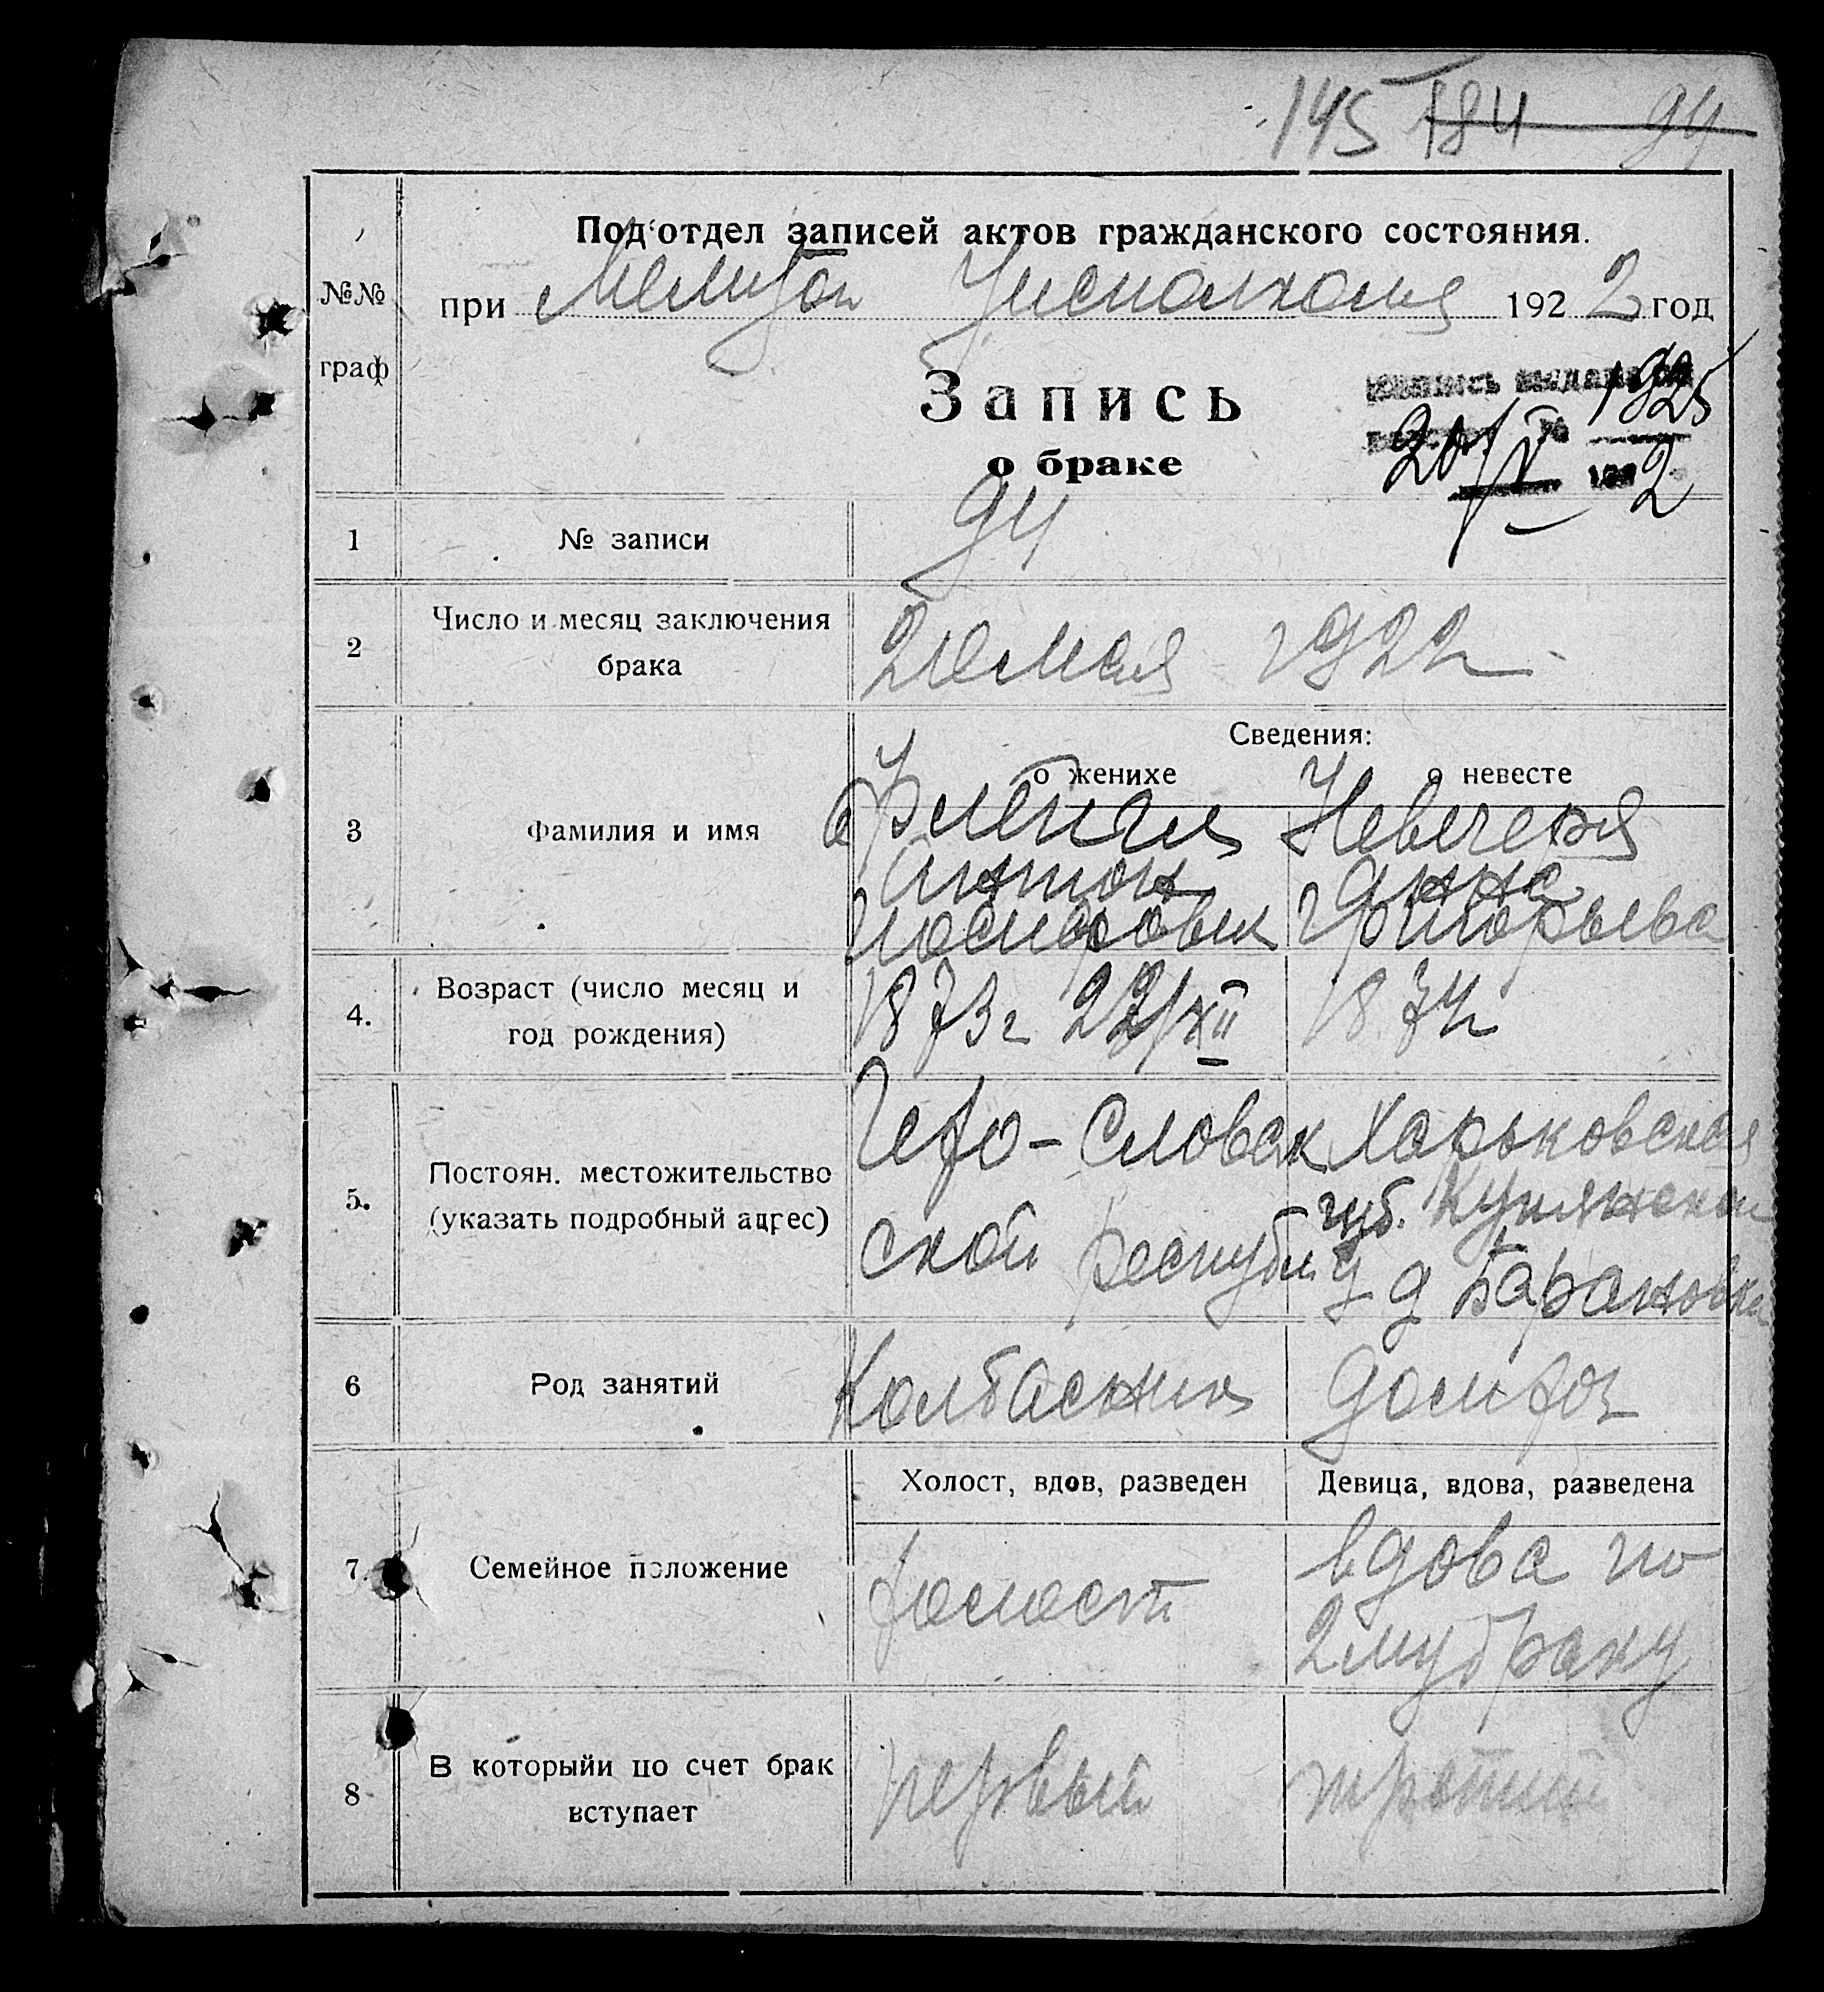 145 184 94
№№
граф
Под'отдел записей актов гражданского состояния.
при Мелит Уисполкома 1922 год
Запись
о браке
1925
20/V 1922
1 № записи 94
2 Число и месяц заключения
брака
20 мая 1922 г
Сведения:
о женихе о невесте
3 Фамилия и имя
Невечеря
Антон Анна
Григорьева
4. Возраст (число месяц и
год рождения)
1873 г 22/XII 1874
5. Постоян. местожительство
(указать подробный адрес)
Чехо-Словак Харьковская
ской республ губ. Купянской
у д Барановка
6 Род занятий
Колбасник домхоз
Холост, вдов, разведен Девица, вдова, разведена
7. Семейное положение
холост вдова по
2му браку
8 В которыйи по счет брак
вступает
первый третий